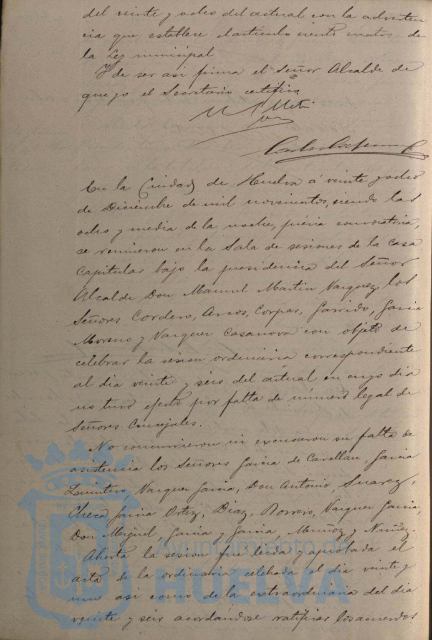 del veinte y ocho del actual con la adverten
cia que establece el artículo ciento cuatro de
la Ley municipal
Y de ser así firma el Señor Alcalde de
que yo el Secretario certifico
En la Ciudad de Huelva á veinte y ocho
de Diciembre de mil novecientos, siendo las
ocho y media de la noche, prévia convocatoria,
se reunieron en la Sala de sesiones de la Casa
Capitular bajo la presidencia del Señor
Alcalde Don Manuel Martin Vazquez, los
Señores Cordero, Arcos, Corpas, Garrido, Garcia
Moreno y Vazquez Casanova con objeto de
celebrar la sesion ordinaria correspondiente
al dia veinte y seis del actual en cuyo dia
no tuvo efecto por falta de número legal de
Señores Concejales.
No concurrieron ni excusaron su falta de
asistencia los Señores Garcia de Cavellan, Garcia
Quintero, Vazquez Garcia, Don Antonio Suarez,
Checa, Garcia Ortiz, Diaz, Borrero, Vazquez Garcia,
Don Miguel, Garcia y Garcia, Muñoz y Nuñez.
Abierta la sesion fue leida y aprobada el
acta de la ordinaria celebrada el dia veinte y
uno así como de la extraordinaria del dia
veinte y seis acordándose ratificar los acuerdos
HUELVA